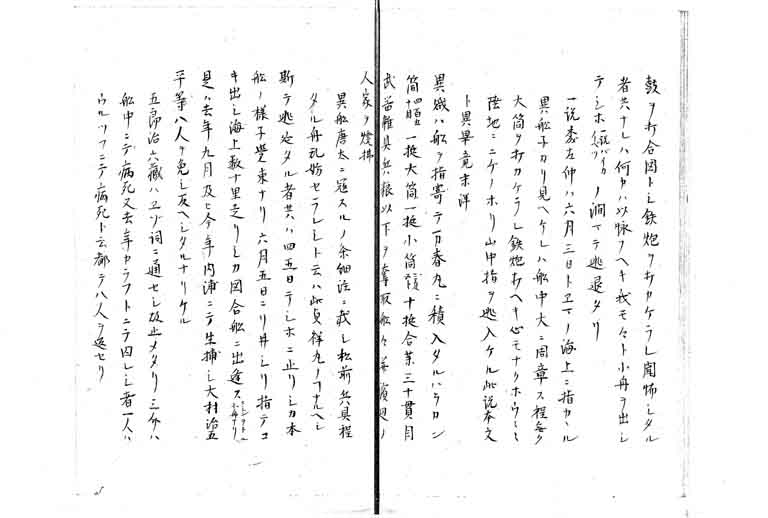 鼓ヲ打合図トシ鉄炮ヲ打カケラレ聞怖シタル
者共ナレハ何カハ以怺フヘキ我モ々々ト小舟ヲ出シ
テシホ ノ澗マテ逃退タリ
一説委左仲ハ六月三日トマヱノ海上ニ指カヽル
異船チカリ見ヘケレハ船中大ニ周章ス程无ク
大筒ヲ打カケラレ鉄炮打ヘキ心モナクホウ々々
陸地ニニケノホリ山中指テ逃入ケル此説本文
ト異畢竟末詳
異賊ハ船ヲ指寄テ万春丸ニ積入タルハラカン
筒 一挺大筒一挺小筒 十挺合薬三十貫目
武器雑具兵粮以下ヲ奪取船々并濱辺ノ
人家ヲ焼拂
異船唐太ニ冦スルノ余細注ニ載シ松前兵具程
タル舟乱妨セラレシト云ハ此貞祥丸ノ事ナルヘシ
斯テ逃延タル者共ハ四五日テシホニ止リシカ本
船ノ様子覚束ナリ六月五日ニリ井シリ指テコ
キ出シ海上数十里走リシカ図合船ニ出逢ス
是ハ去年九月及ヒ今年内浦ニテ生捕シ大村治五
平等八人ヲ免シ返ヘシタルナリケル
五郎治六蔵ハヱゾ詞ニ通セシ故止メタリ三分ハ
船中ニテ病死又去年カラフトニテ囚レシ者一人ハ
ウルツフニテ病死ト云都テ八人ヲ返セリ